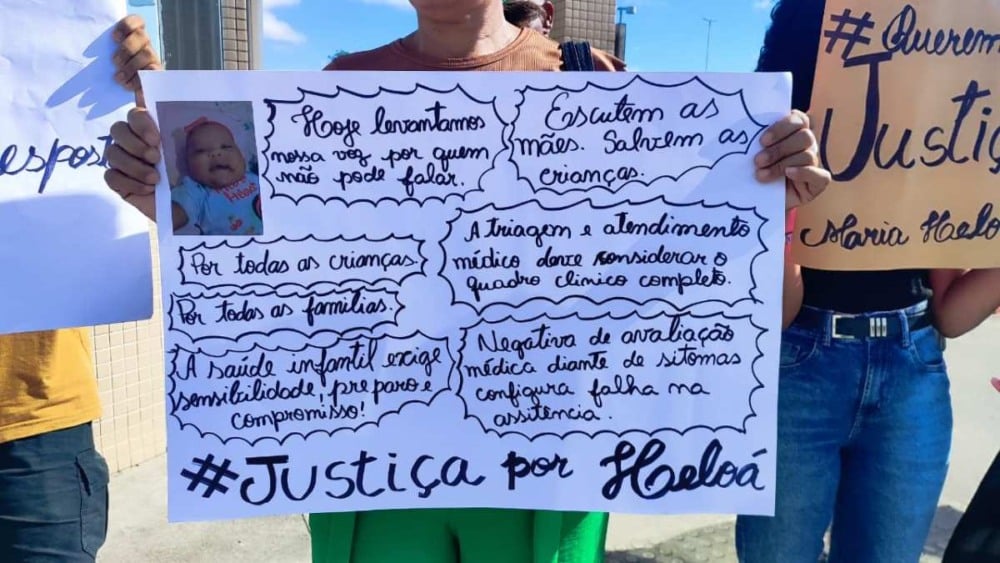 espost
Hoje levantamos
nossa voz por quem
não pode falar.
Escutem as
mães. Salvem as
crianças.
Por todas as crianças.
Por todas as famílias.
A saúde infantil exige
sensibilidade, preparo e
compromisso!
A triagem e atendimento
médico deve considerar o
quadro clinico completo.
Negativa de avaliação
médica diante de sitomas
configura falha na
assitência.
#Justiça por Heloá
#Querem
Justiç
Maria Helo